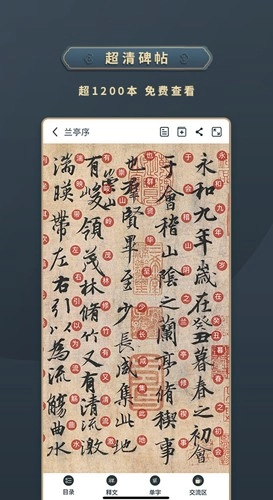 超清碑帖
超1200本 免费查看
兰亭序
永和九年歲在癸丑暮春之初會
于會稽山陰之蘭亭脩稧事
也羣賢畢至少長咸集此地
有崇山峻領茂林脩竹又有清流激
湍暎帶左右引以為流觴曲水
目录
释文
单字
交流区